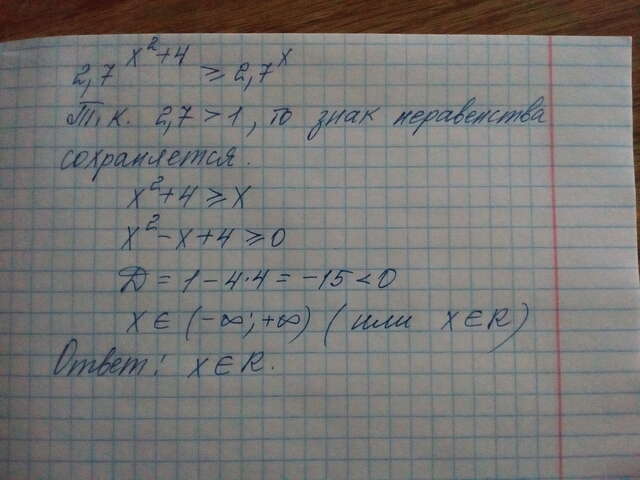 2,7^(x²+4) ≥ 2,7^x
Т.к. 2,7 > 1, то знак неравенства
сохраняется.
x² + 4 ≥ x
x² - x + 4 ≥ 0
Д = 1 - 4·4 = -15 < 0
x ∈ (-∞; +∞) (или x ∈ R)
Ответ: x ∈ R.